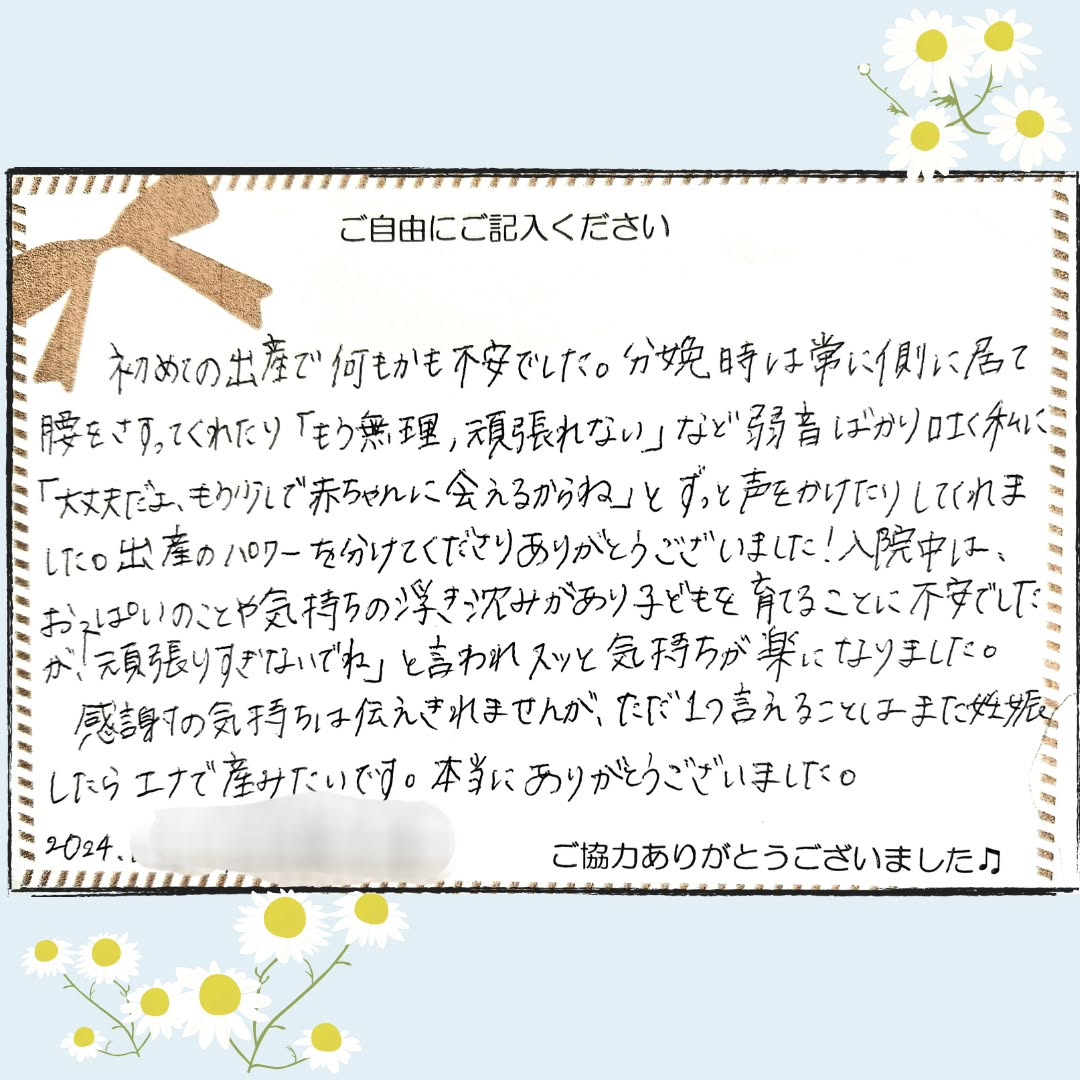 ご自由にご記入ください
初めての出産で何もかも不安でした。分娩時は常に側に居て
腰をさすってくれたり「もう無理,頑張れない」など弱音ばかり吐く私に
「大丈夫だよ、もう少しで赤ちゃんに会えるからね」とずっと声をかけたりしてくれま
した。出産のパワーを分けてくださりありがとうございました!入院中は、
おっぱいのことや気持ちの浮き沈みがあり子どもを育てることに不安でした
が、「頑張りすぎないでね」と言われスッと気持ちが楽になりました。
感謝の気持ちは伝えきれませんが、ただ1つ言えることはまた妊娠
したらエナで産みたいです。本当にありがとうございました。
2024.
ご協力ありがとうございました♫